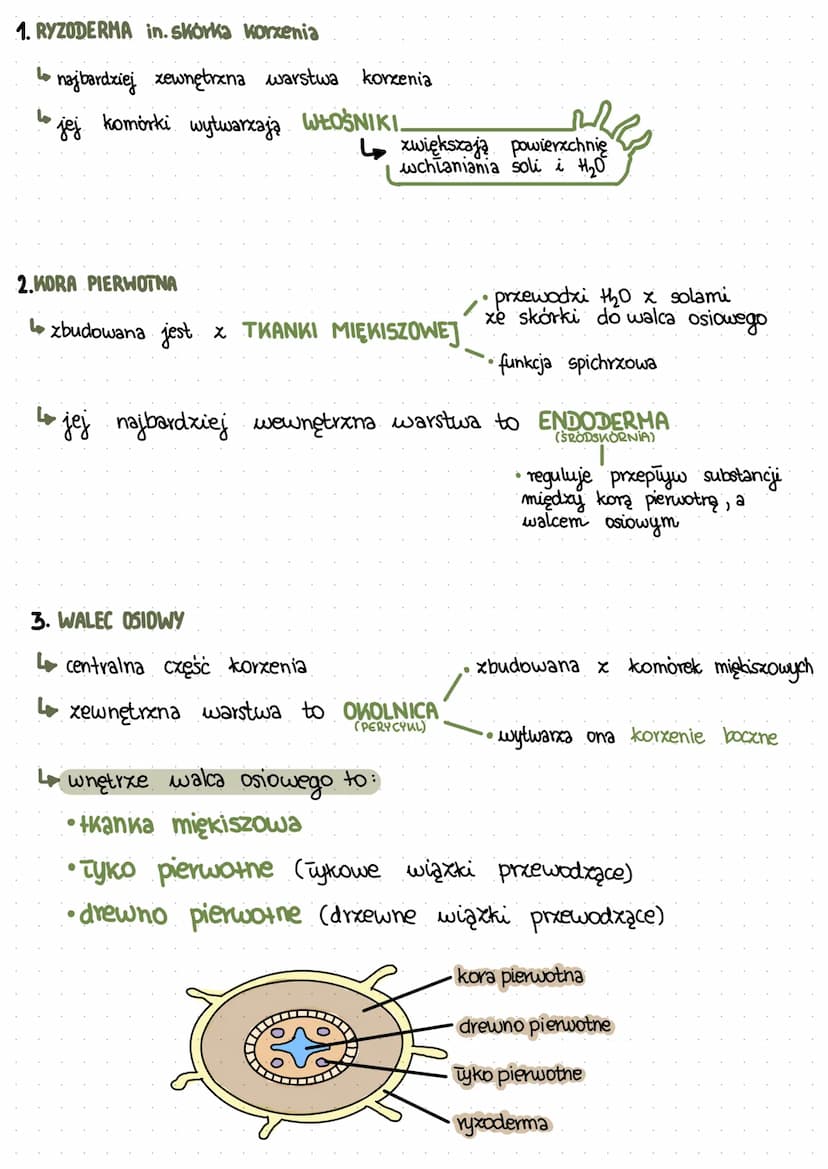 1. RYZODERMA in. skórka korzenia
↳ najbardziej zewnętrzna warstwa korzenia
↳ jej komórki wytwarzają WŁOŚNIKI
↳ zwiększają powierzchnię
wchłaniania soli i H₂O
2. KORA PIERWOTNA
↳ zbudowana jest z TKANKI MIĘKISZOWEJ
• przewodzi H₂O z solami
ze skórki do walca osiowego
• funkcja spichrzowa
↳ jej najbardziej wewnętrzna warstwa to ENDODERMA
(ŚRÓDSKÓRNIA)
• reguluje przepływ substancji
między korą pierwotną, a
walcem osiowym
3. WALEC OSIOWY
↳ centralna część korzenia
↳ zewnętrzna warstwa to OKOLNICA
(PERYCYKL)
• zbudowana z komórek miękiszowych
• wytwarza ona korzenie boczne
↳ wnętrze walca osiowego to:
• tkanka miękiszowa
• łyko pierwotne (łykowe wiązki przewodzące)
• drewno pierwotne (drzewne wiązki przewodzące)
kora pierwotna
drewno pierwotne
łyko pierwotne
ryzoderma